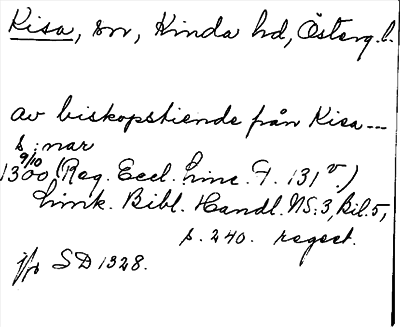 Kisa, sn, Kinda hd, Österg. l.
av biskopstiende från Kisa ---
s:nar
9/10
1300 (Reg. Eccl. Linc. F. 131 v.)
Link. Bibl. Handl. NS:3, Bil. 5,
s. 240. regest.
jfr SD 1328.